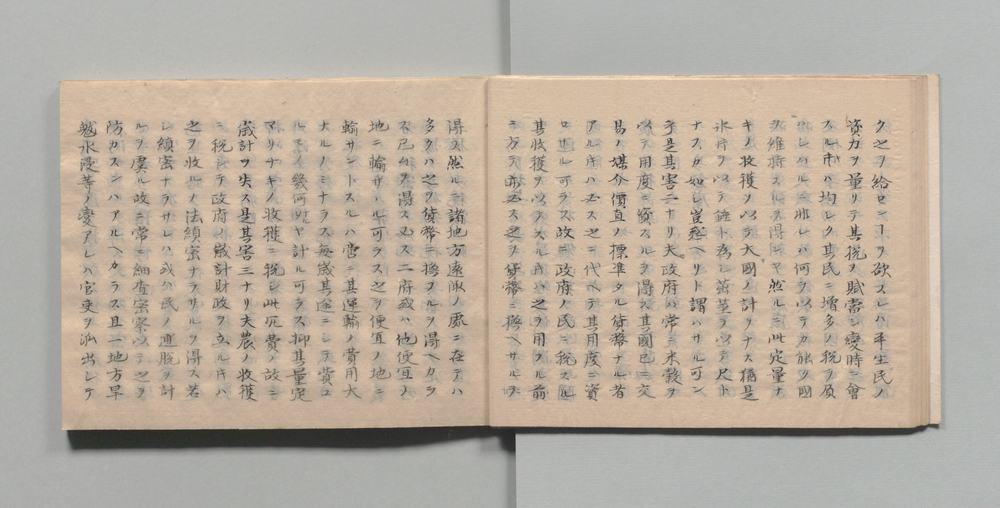 之ヲ給ロントヲ欲スレハ平生民ノ
資力ヲ量リテ其税ヲ賦當シ變時ニ會
スル市ハ均シク其民ニ増多ノ税ヲ負
ハシムルニ非レハ何ヲ以テカ能ク國
ヲ維持スルヲ得ン然ルニ此定量ナ
キノ收獲ヲ以テ大國ノ計ヲナス猶是
氷片ヲ以テ錘ト為シ莖ヲ以テ尺ト
ナスカ如シ豈愁ヘリト謂ハサル可ン
乎是其害二ナリ夫政府ハ常ニ米穀ヲ
以テ用度ニ資スルヲ得ス其國已ニ交
易ノ媒介價直ノ標準タル貨幣ナル者
アル片ハ必ス之ニ代ヘテ其用度ニ資
セサル可ラス故ニ政府ノ民ニ税スル
其收獲ヲ以テスル片ハ之ヲ用フル前
ニ方テ必ス之ヲ貨幣ニ換ヘサルヲ
得ス然ルニ諸地方遠隔ノ處ニ在テハ
多クハ之ヲ貨幣ニ換フルヲ得ヘカラ
ス已ムヲ得ス必ス二府或ハ他便宜ノ
地ニ輸サヽル可ラス之ヲ便宜ノ地ニ
輸サントスルハ啻ニ其運輸ノ費用大
ナルノミナラス毎歳其途ニシテ費ユ
ル丁幾何ソヤ計ル可ラス抑其量定
アリナキノ收獲ニ税シ此冗費ノ故ニ
歳計ヲ失ス是其害三ナリ夫農ノ收獲
ニ税シテ政府ノ歳計財政ヲ立ル片ハ
之ヲ收ルノ法縝密ナラサルヲ得ス若
シ縝密ナラサレハ或ハ民ノ逋脱ヲ計
ルヲ虞ル故ニ常ニ細査密察以テ之ヲ
防カスンハアルヘカラス且一地方旱
魃水漫等ノ變アレハ官吏ヲ派出シテ